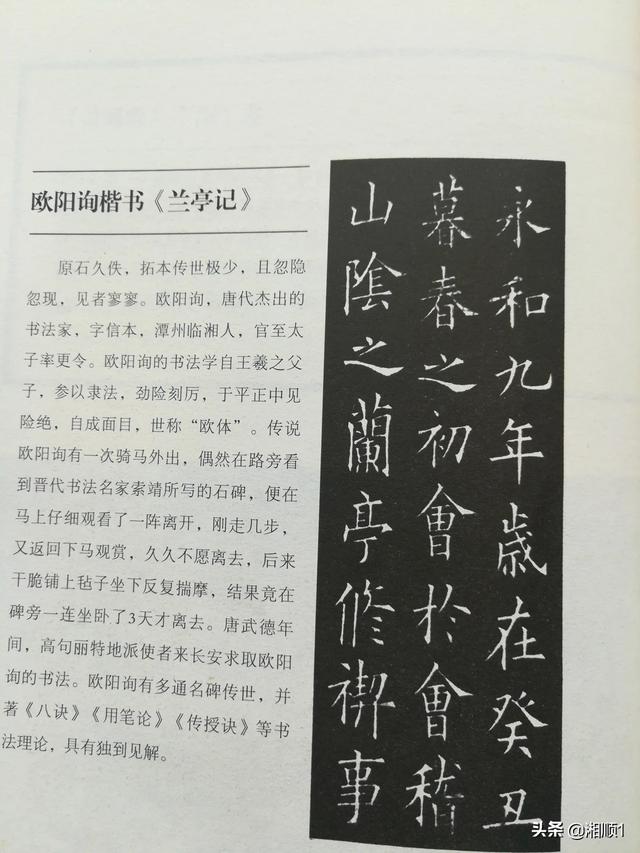 欧阳询楷书《兰亭记》
原石久佚，拓本传世极少，且忽隐
忽现，见者寥寥。欧阳询，唐代杰出的
书法家，字信本，潭州临湘人，官至太
子率更令。欧阳询的书法学自王羲之父
子，参以隶法，劲险刻厉，于平正中见
险绝，自成面目，世称“欧体”。传说
欧阳询有一次骑马外出，偶然在路旁看
到晋代书法名家索靖所写的石碑，便在
马上仔细观看了一阵离开，刚走几步，
又返回下马观赏，久久不愿离去，后来
干脆铺上毡子坐下反复揣摩，结果竟在
碑旁一连坐卧了3天才离去。唐武德年
间，高句丽特地派使者来长安求取欧阳
询的书法。欧阳询有多通名碑传世，并
著《八诀》《用笔论》《传授诀》等书
法理论，具有独到见解。
永和九年歲在癸丑
暮春之初會於會稽
山陰之蘭亭修禊事
头条@湘顺1